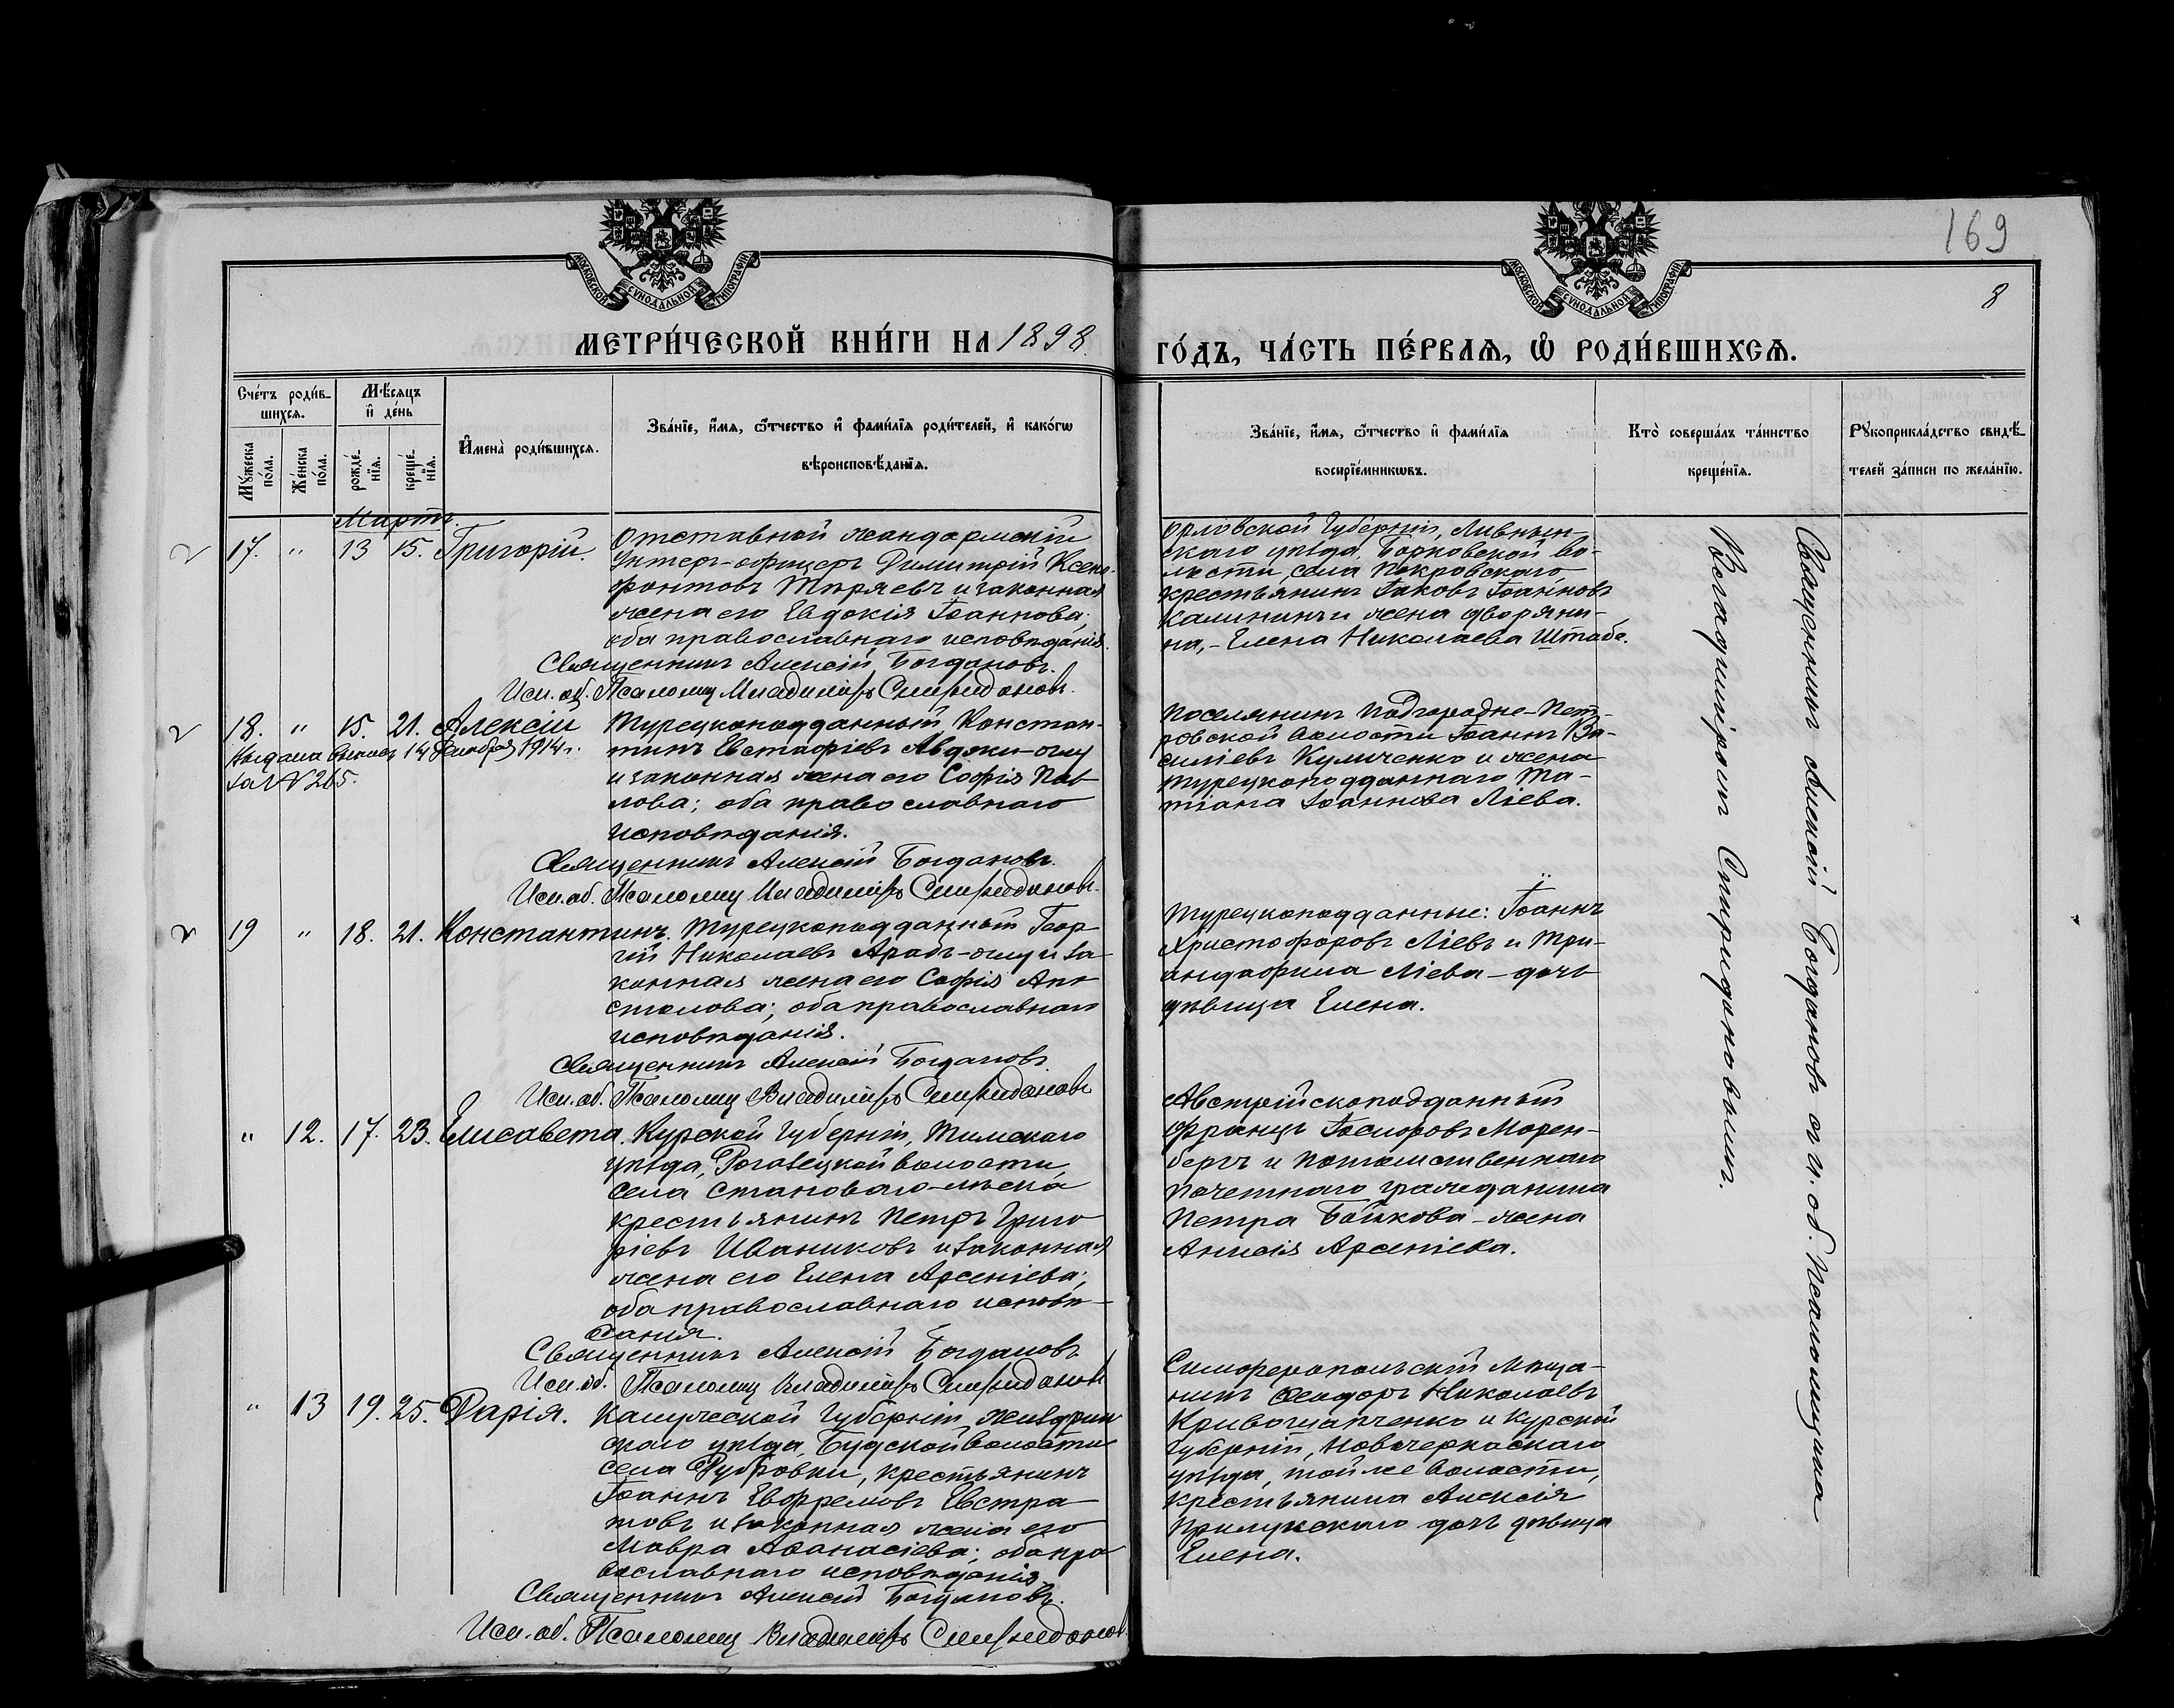 169
8
МОСКОВСКОЙ СУНОДАЛЬНОЙ ТИПОГРАФІИ
МОСКОВСКОЙ СУНОДАЛЬНОЙ ТИПОГРАФІИ
МЕТРИ́ЧЕСКОЙ КНИ́ГИ НА 1898.
ГО́ДЪ, ЧА́СТЬ ПЕ́РВАѦ, Ѡ҆ РОДИ́ВШИХСѦ.
Сче́тъ роди́в-
шихсѧ.
Мꙋ́жеска по́ла.
Же́нска по́ла.
Мѣ́сѧцъ
и҆ де́нь
рожде́-нїѧ.
креще́-нїѧ.
И҆мена̀ роди́вшихсѧ.
Зва́нїе, и҆́мѧ, ѻ҆́тчество и҆ фами́лїѧ роди́телей, и҆ како́гѡ
вѣроисповѣ́данїѧ.
Зва́нїе, и҆́мѧ, ѻ҆́тчество и҆ фами́лїѧ
воспрїе́мникѡвъ.
Кто̀ соверша́лъ та́инство
креще́нїѧ.
Рꙋкоприкла́дство свидѣ́-
телей за́писи по жела́нїю.
Мартъ.
2 17. " 13 15. Григорій.
Отставной жандармскій
Унтеръ-офицеръ Димитрій Ксено-
фонтовъ Тиряевъ и законная
жена его Евдокія Іоаннова;
оба православнаго исповѣданія.
Священникъ Алексій Богдановъ.
Исп. об. Псаломщ Владиміръ Спиридоновъ.
Орловской Губерніи, Ливнен-
скаго уѣзда, Борковской во-
лости, села Покровскаго
крестьянинъ Іаковъ Іоанновъ
Калининъ и жена дворяни-
на, - Елена Николаева Штабе.
2 18. " 15. 21. Алексій
Выдана выпись 14 Декабря 1914 г.
за № 265.
Турецкоподданный Констан-
тинъ Евстафіевъ Авджи-оглу
и законная жена его Софія Пав
лова; оба православнаго
исповѣданія.
Священникъ Алексій Богдановъ.
Исп. об. Псаломщ Владиміръ Спиридоновъ.
Поселянинъ Подгородне-Пет-
ровской волости Іоаннъ Ва-
силіевъ Куличенко и жена
турецкоподданнаго Та-
тіана Іоаннова Ліева.
2 19 " 18. 21. Константинъ.
Турецкоподданный Геор
гій Николаевъ Арабъ-оглу и за
конная жена его Софія Апо
столова; оба православнаго
исповѣданія.
Священникъ Алексій Богдановъ.
Исп. об. Псаломщ Владиміръ Спиридоновъ
Турецкоподданные: Іоаннъ
Христофоровъ Ліевъ и Три-
андафила Ліева - дочь
дѣвица Елена.
" 12. 17. 23. Елисавета.
Курской Губерніи, Тимскаго
уѣзда, Рогозецкой волости,
села Становаго-лѣска
крестьянинъ Петръ Григо
ріевъ Иваниковъ и законная
жена его Елена Арсеніева;
оба православнаго исповѣ-
данія.
Священникъ Алексій Богдановъ
Исп. об. Псаломщ Владиміръ Спиридоновъ
Австрійскоподданный
Францъ Іосифовъ Морен-
бергъ и потомственнаго
почетнаго гражданина
Петра Бойкова - жена
Анисія Арсеніева.
" 13 19. 25. Дарія.
Калужской Губерніи, Жиздрин
скаго уѣзда, Будской волости
села Дубровки, крестьянинъ
Іоаннъ Евфремовъ Евстра
товъ и законная жена его
Мавра Аѳанасіева; оба пра
вославнаго исповѣданія.
Священникъ Алексій Богдановъ.
Исп. об. Псаломщ Владиміръ Спиридоновъ
Симферопольскій мѣща-
нинъ Ѳеодоръ Николаевъ
Кривошапченко и Курской
Губерніи, Новочеркаскаго
уѣзда, той же волости,
крестьянина Алексія
Прилукскаго дочь дѣвица
Елена.
Священникъ Алексій Богдановъ съ и. об. Псаломщика
Володиміромъ Спиридоновымъ.